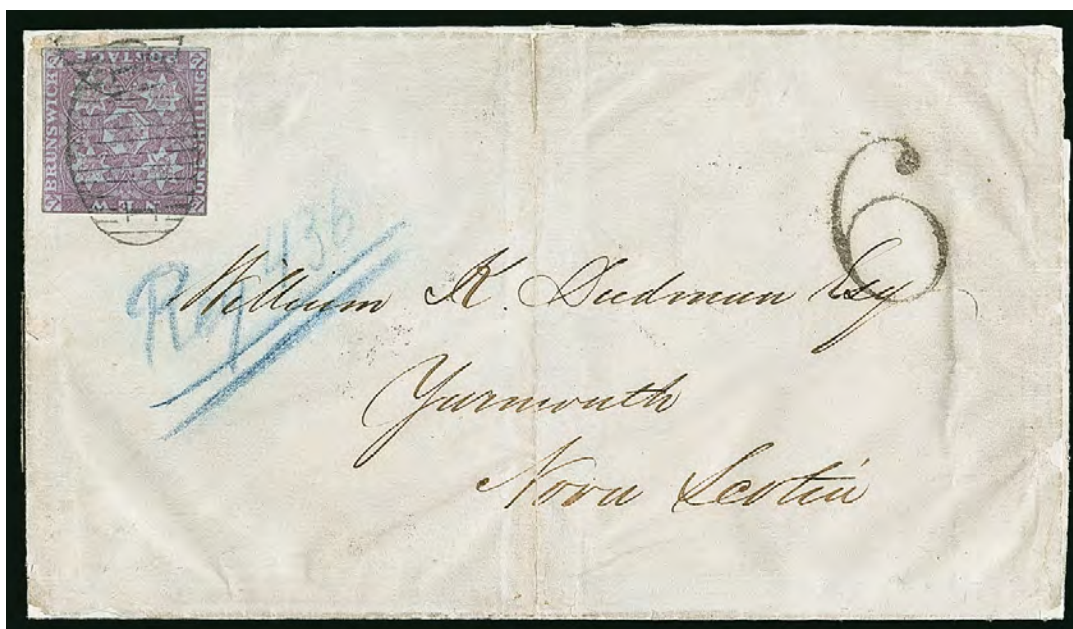 NEW
BRUNSWICK
POSTAGE
ONE SHILLING
6
Reg 436
William K. Dudman Esq
Yarmouth
Nova Scotia